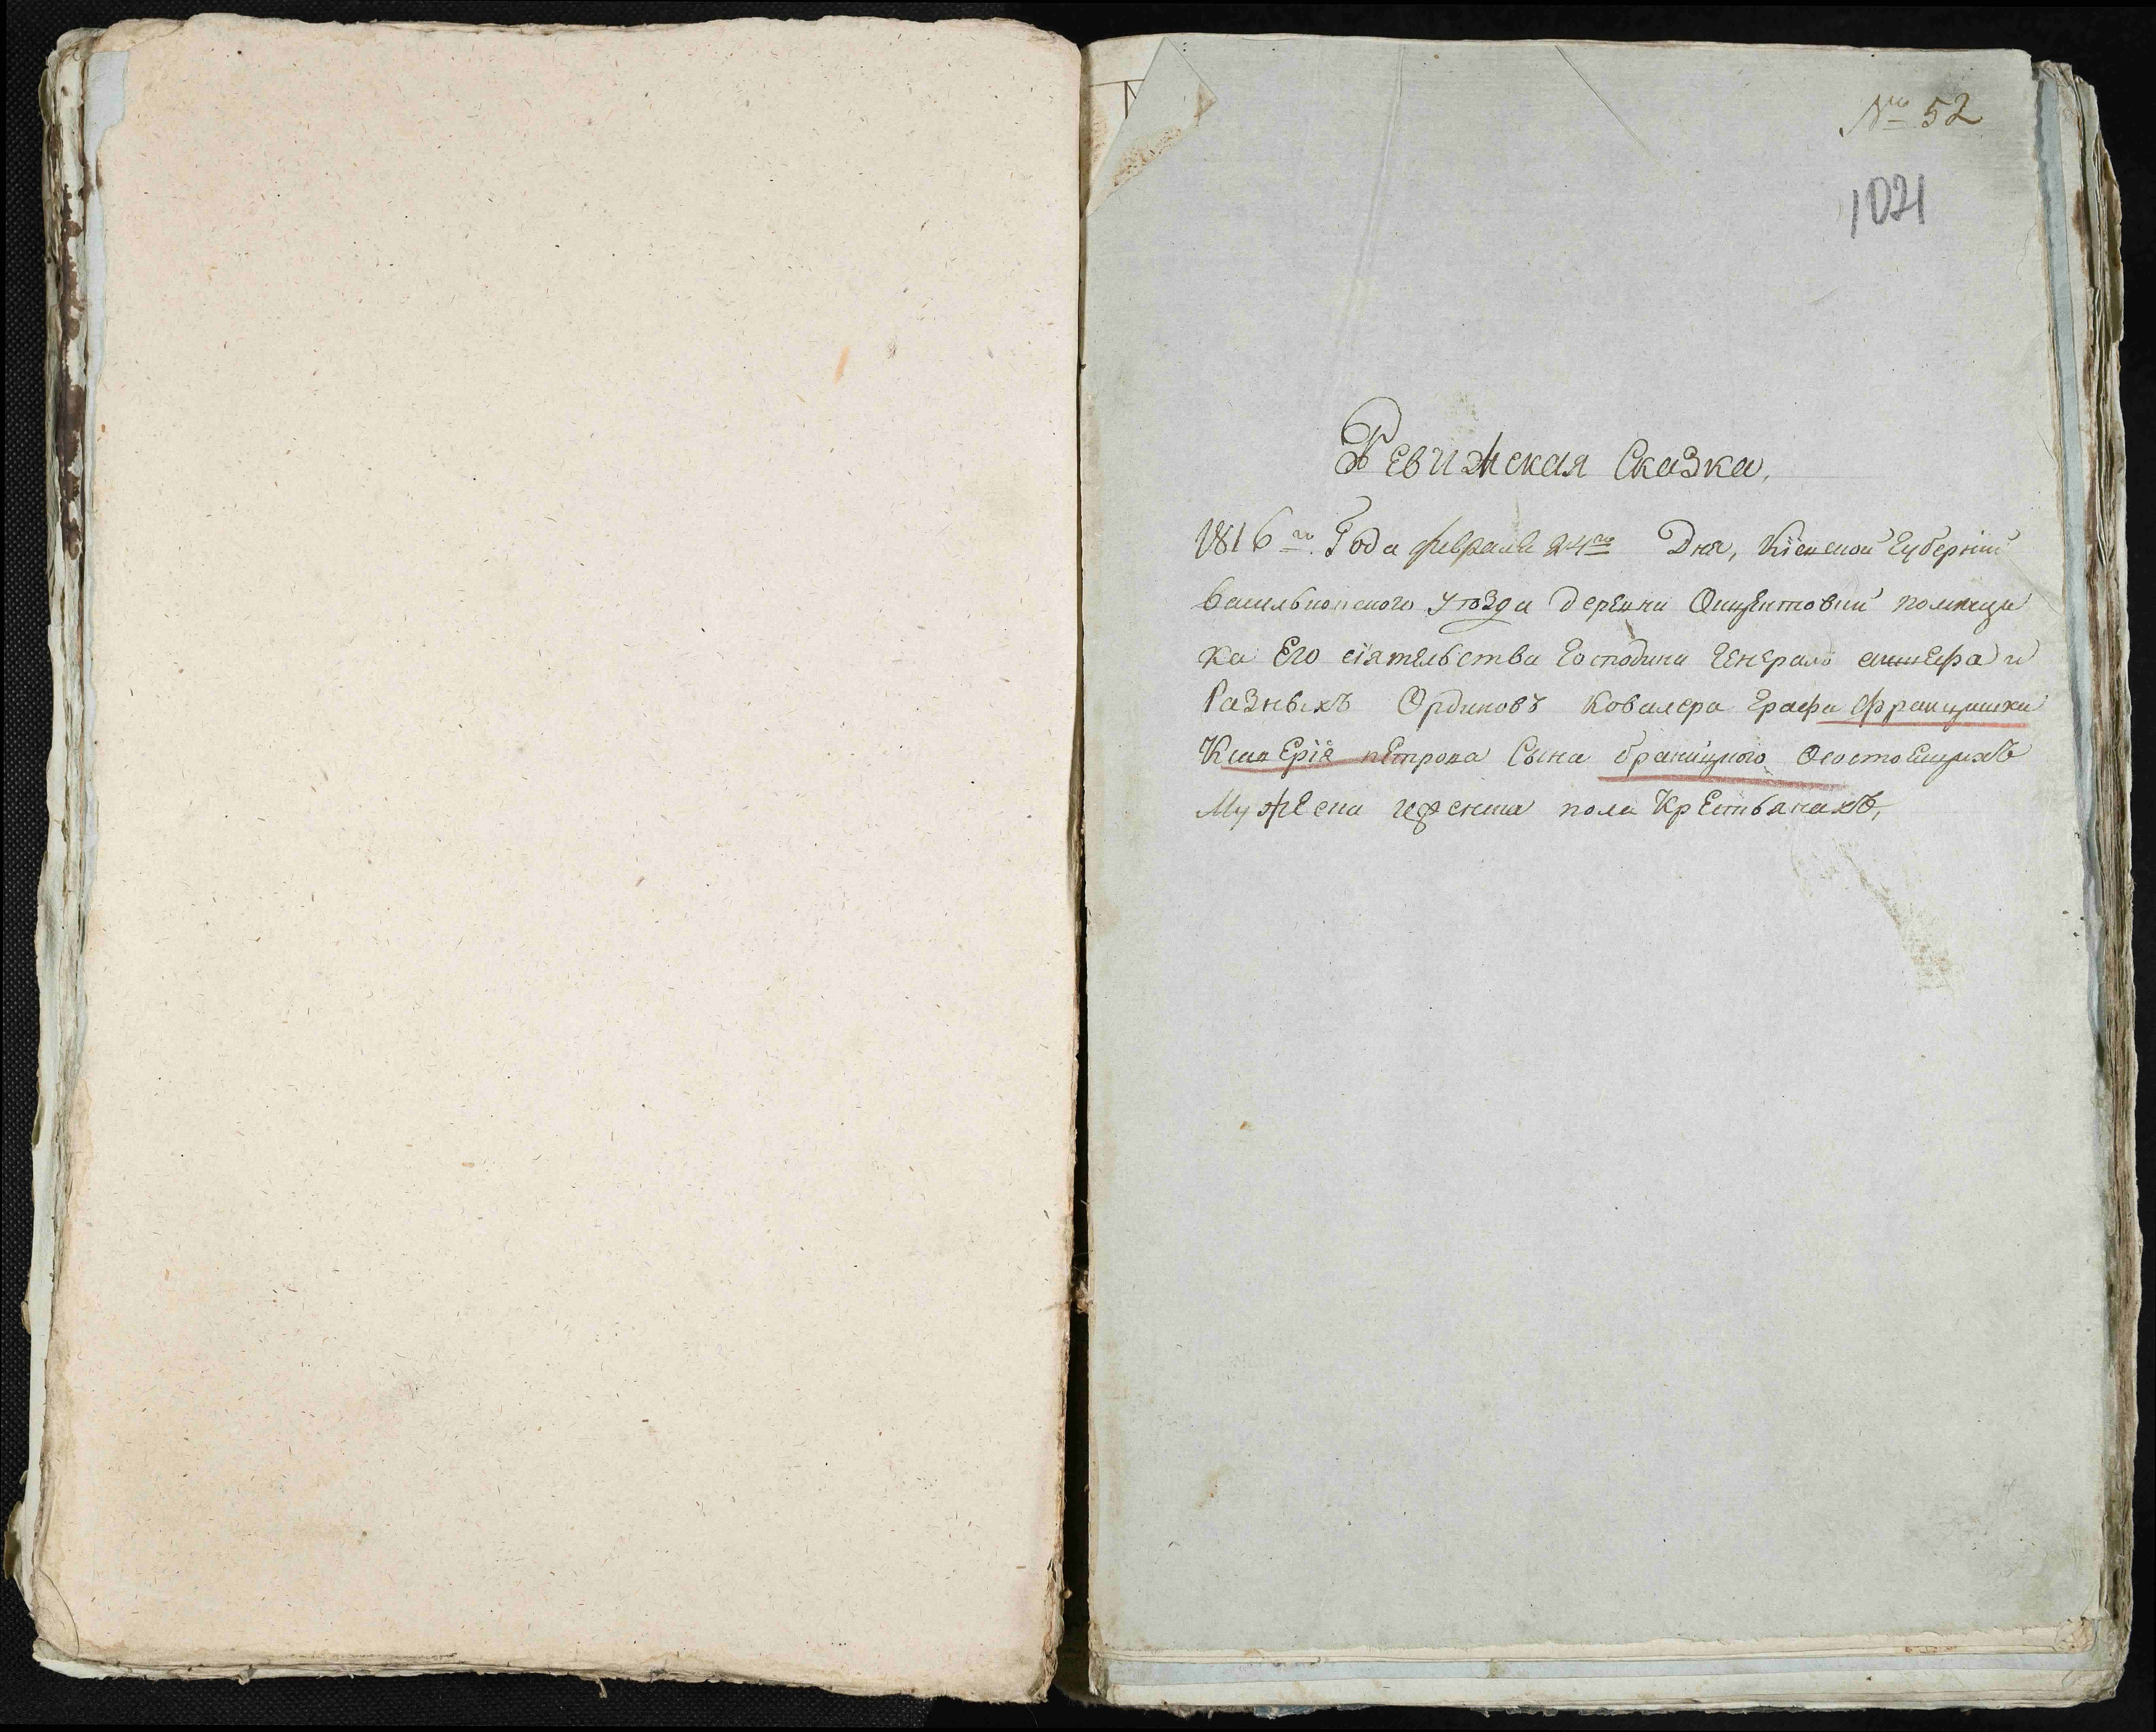 № 52
1021
Ревижская Сказка,
1816го Года февраля 24го Дня, Кіевской Губерніи
васильковского Уѣзда деревни помещи
ка Его сіятельства Господина Генерала аншефа и
Разныхъ Ординовъ Ковалера Графа Францишка
Ксаверія петрова Сына браницкого Осостоещихъ
Мужеска иженска пола Крестьянахъ,